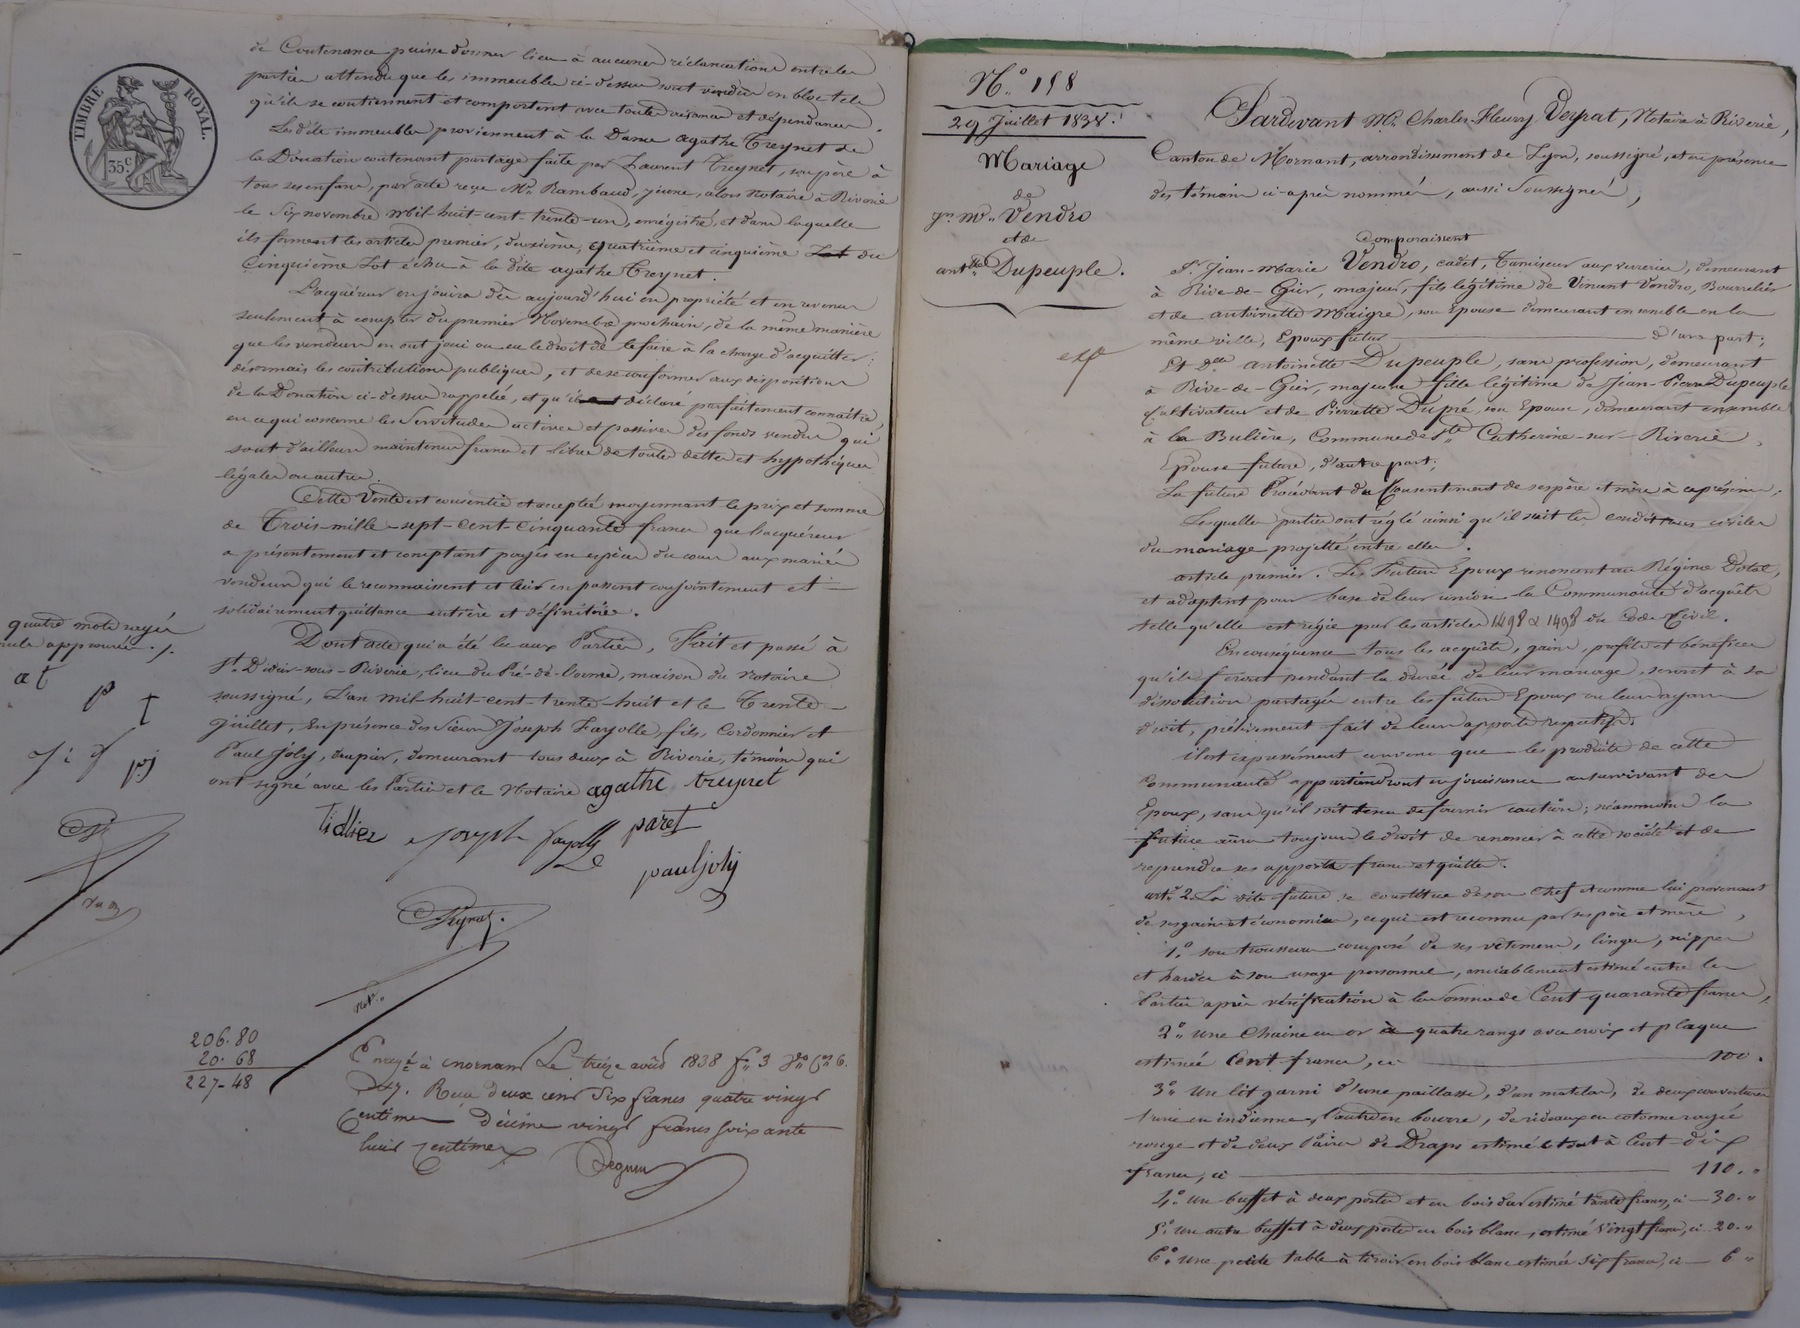 TIMBRE ROYAL.
35c.
de Contenance puisse donner lieu à aucunes réclamations entre les
parties attendu que les immeubles ci-dessus sont vendus en bloc tels
qu'ils se contiennent et comportent avec toutes aisances et dépendances.
Les dits immeubles proviennent à la Dame agathe Treynet de
la Donation contenant partage faite par Laurent Treynet, son père à
tous ses enfans, par acte reçu Me Rambaud, jeune, alors Notaire à Riverie
le Six novembre mil-huit-cent-trente-un, enrégistré, et dans laquelle
ils forment les articles premier, deuxième, quatrième et cinquième Lot du
Cinquième Lot échu à la dite agathe Treynet.
L'acquéreur en jouira dès aujourd'hui en propriété et en revenus
seulement à compter du premier Novembre prochain, de la même manière
que les vendeurs en ont joui ou eu le droit de le faire à la charge d'acquitter
désormais les contributions publiques, et de se conformer aux dispositions
de la Donation ci-dessus rappelée, et qu'il déclaré parfaitement connaître
en ce qui concerne les Servitudes actives et passives des fonds vendus qui
sont d'ailleurs maintenus francs et libres de toutes dettes et hypothèques
légales ou autres.
Cette Vente est consentie et acceptée moyennant le prix et somme
de Trois-mille-sept-cent-cinquante francs que l'acquéreur
a présentement et comptant payée en espèces du cours aux mariés
vendeurs qui le reconnaissent et lui en passent conjointement et
solidairement quittance entière et définitive.
Dont acte qui a été lu aux Parties, Fait et passé à
St Didier-sous-Riverie, lieu du Pré-de-l'orme, maison du Notaire
soussigné, L'an mil-huit-cent-trente-huit et le Trente
Juillet, En présence des Sieurs Joseph Fayolle, fils, Cordonnier et
Paul Joly, demeurant tous deux à Riverie, témoins qui
ont signé avec les Parties et le Notaire agathe treynet
quatre mots rayés
nuls approuvés ./.
at p t
J: f pj
Tidlier Joseph fayolle paret
paul joly
Veyrat.
Not.
206.80
20.68
227-48
Enregé à Mornant Le treize août 1838 fo 3 Vo Ces 6.
Reçu deux cent Six francs quatre vingt
Centimes Décime vingt francs soixante
huit centimes
N.o 158
29 Juillet 1838.
Mariage
de
jn me Vendro
et de
antte Dupeuple.
exp
Pardevant Me Charles-Fleury Veyrat, Notaire à Riverie,
Canton de Mornant, arrondissement de Lyon, soussigné, et en présence
des témoins ci-après nommés, aussi Soussignés,
Comparaissent
Sr Jean-Marie Vendro, cadet, Tamiseur aux verreries, demeurant
à Rive-de-Gier, majeur, fils légitime de Vincent Vendro, Bourrelier
et de antoinette Maigre, son Epouse demeurant ensemble en la
même ville, Epoux futur d'une part;
Et Dlle antoinette Dupeuple, sans profession, demeurant
à Rive-de-Gier, majeure fille légitime de Jean-Pierre Dupeuple
Cultivateur et de Pierrette Dupré, son Epouse, demeurant ensemble
à la Bulière, Commune de Ste Catherine-sur-Riverie,
Epouse future, d'autre part;
La future Procédant du Consentement de ses père et mère à ce présens,
Lesquelles parties ont réglé ainsi qu'il suit les conditions civiles
du mariage projetté entre elles.
article premier. Les Futurs Epoux renoncent au Régime Dotal,
et adoptent pour base de leur union la Communauté d'acquêts
telle qu'elle est régie par les articles 1498 & 1499 du Code Civil.
En conséquence tous les acquêts, gains, profits et bénéfices
qu'ils feront pendant la durée de leur mariage, seront à sa
dissolution partagés entre les futurs Epoux ou leurs ayans
droit, prélèvement fait de leurs apports respectifs.
Il est expressément convenu que les produits de cette
communauté appartiendront en jouissance au survivant des
Epoux, sans qu'il soit tenu de fournir caution; néanmoins la
future aura toujours le droit de renoncer à cette société et de
reprendre ses apports francs et quittes.
art. 2. La dite future se constitue de son chef et comme lui provenant
de ses gains et économies, ce qui est reconnu par ses père et mère,
1.o son trousseau composé de ses vêtemens, linges, nippes
et hardes à son usage personnel, amiablement estimé entre les
Parties après vérification à la Somme de Cent-quarante francs,
2.o une Chaine en or à quatre rangs avec croix et plaque
estimée Cent francs, ci 100.
3.o Un lit garni d'une paillasse, d'un matelas, de deux couvertures
l'une en indienne, l'autre en bourre, de rideaux en cotonne rayée
rouge et de deux Paires de Draps estimé le tout à Cent-dix
francs, ci 110. "
4.o un buffet à deux portes et en bois dur estimé trente francs, ci 30. "
5.o Un autre buffet à deux portes en bois blanc, estimé Vingt francs, ci 20. "
6.o Une petite table à tiroir en bois blanc estimée Six francs, ci 6 "